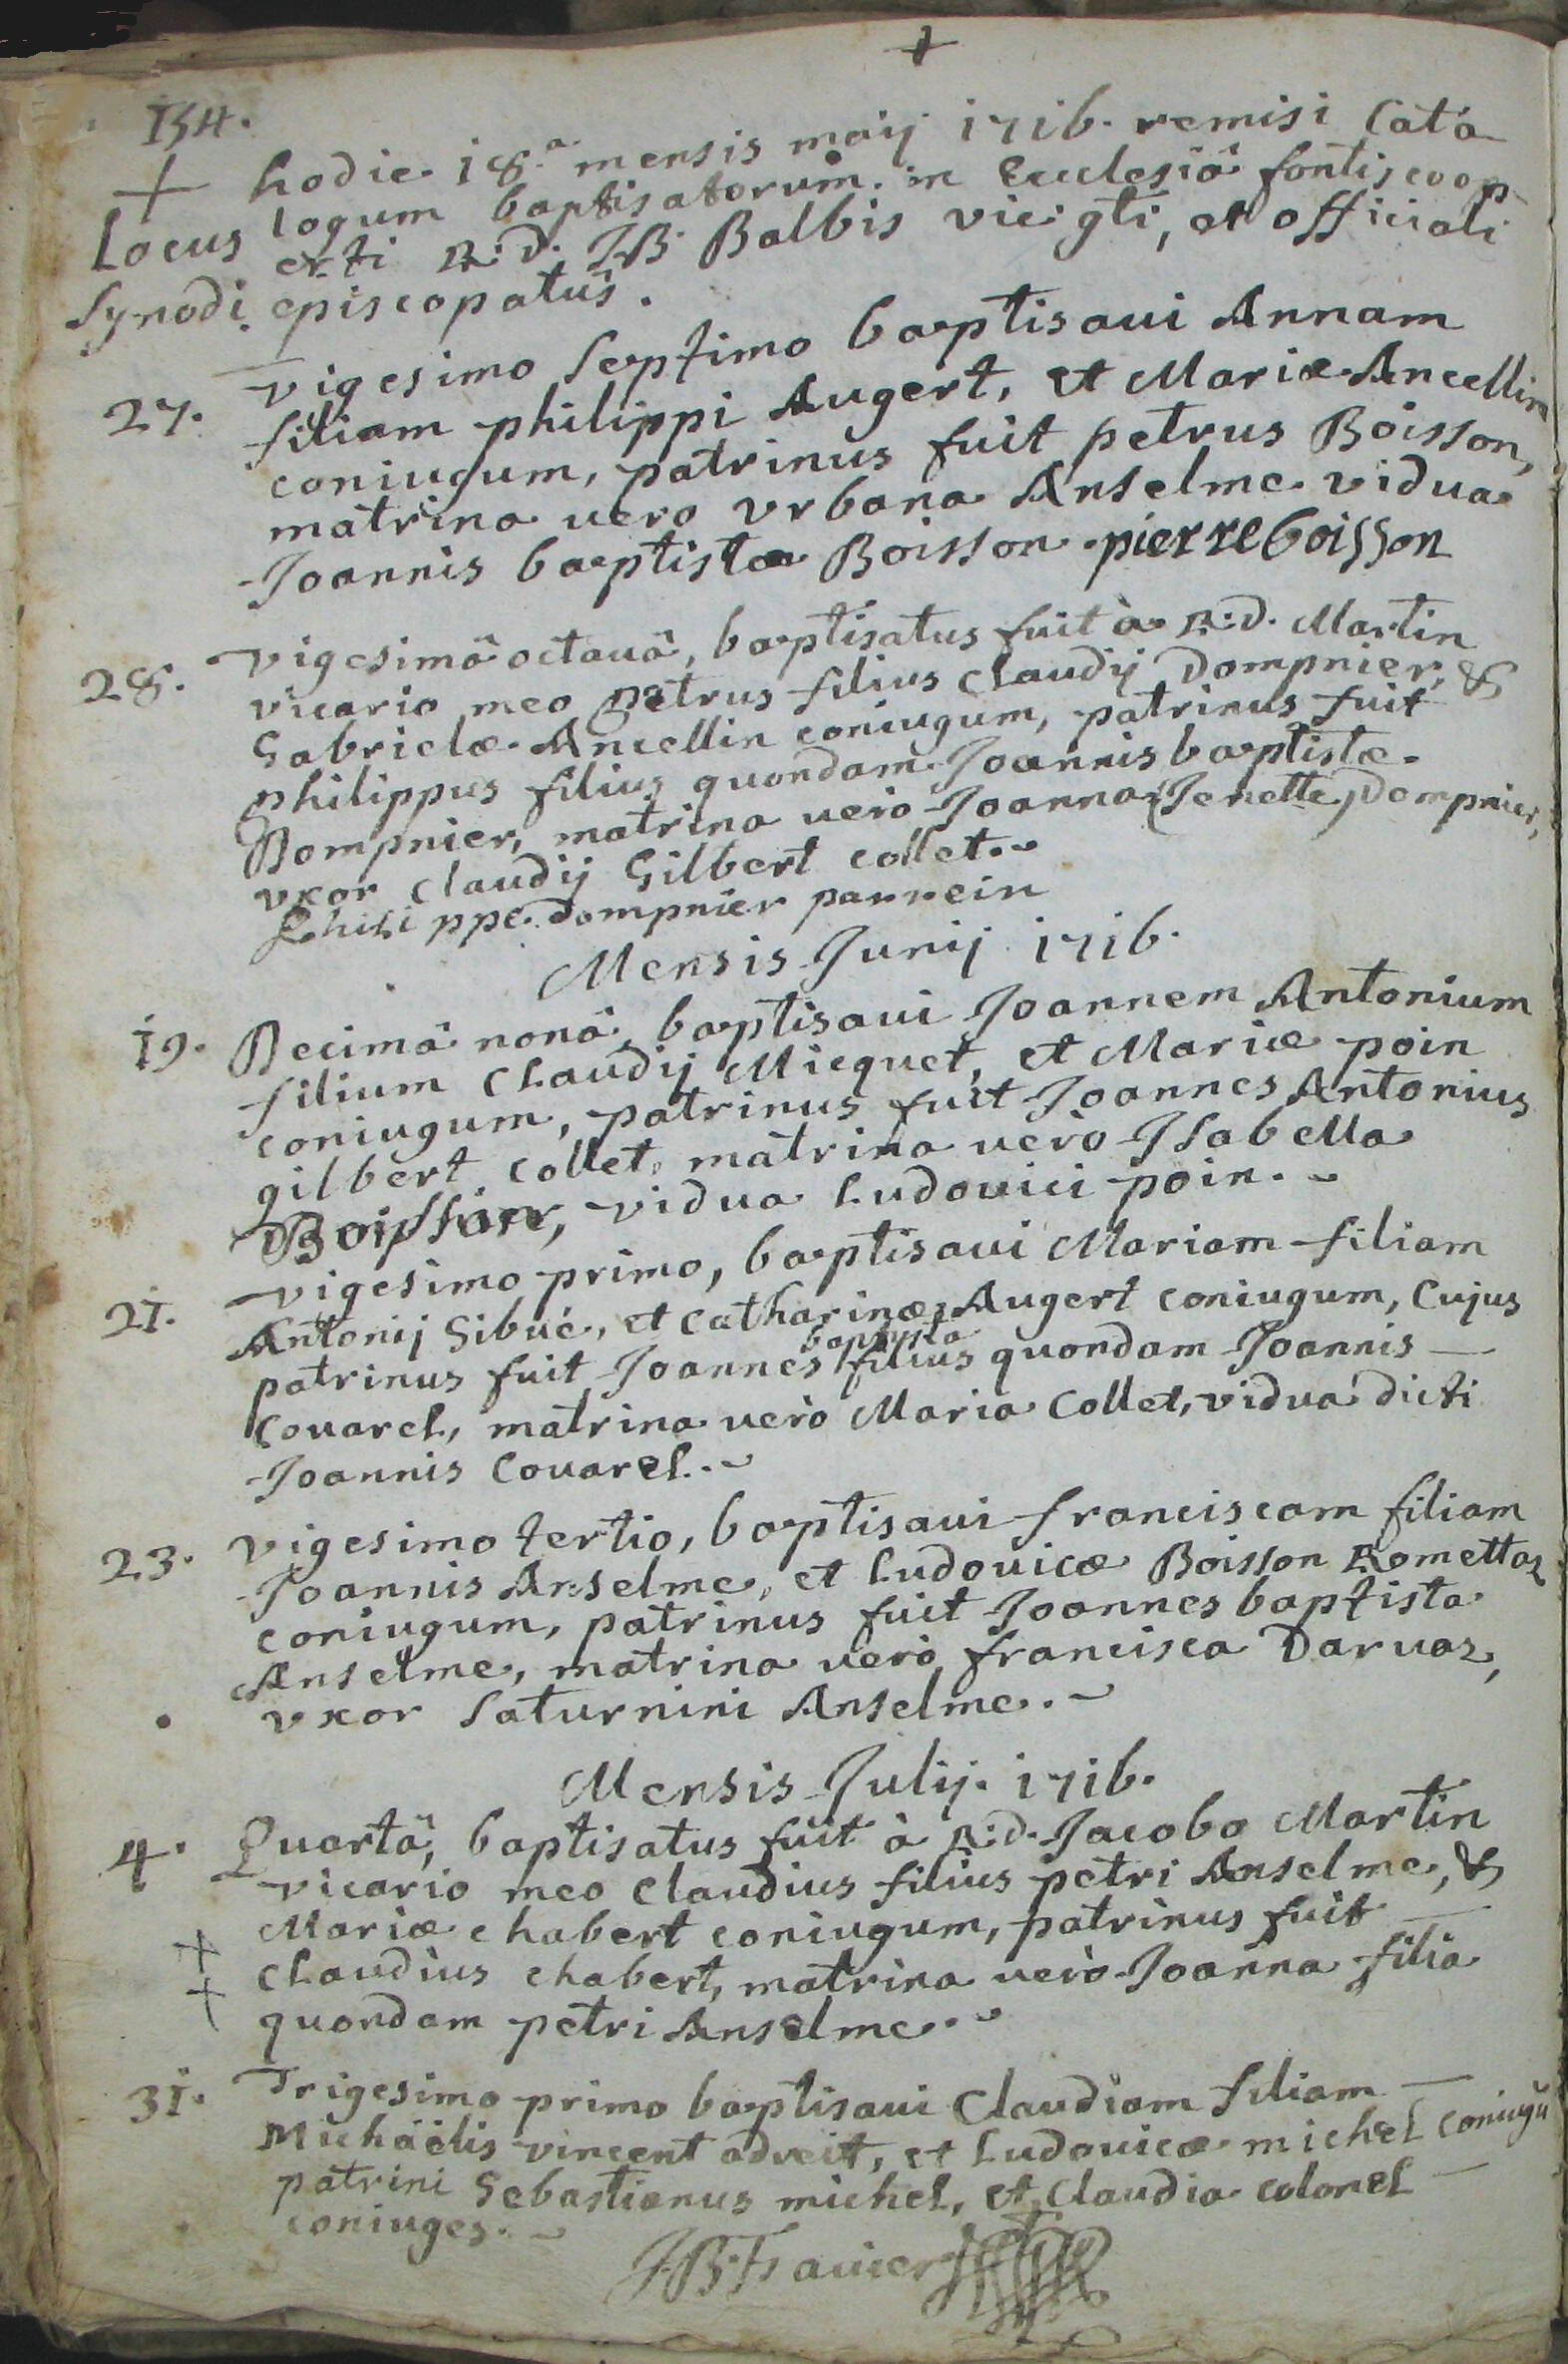 +
154.
+ hodie 18.a mensis maij 1716. remisi Cata
Locus logum baptisatorum in Ecclesiâ fontiscoop
erti R.d. J.B. Balbis vic. gti, et officiali
Synodi episcopatûs.
27. vigesimo septimo baptisaui Annam
filiam philippi Augert, et Mariæ Ancellin
coniugum, patrinus fuit petrus Boisson,
matrina uero vrbana Anselme vidua
Joannis baptistæ Boisson. pierre boisson
28. vigesimâ octauâ, baptisatus fuit à R.d. Martin
vicario meo petrus filius claudij Dompnier, &
Gabrielæ Ancellin coniugum, patrinus fuit
philippus filius quondam Joannis baptistæ
Dompnier, matrina uerò Joanna (Jenette) Dompnier,
vxor claudij Gilbert collet.
Philippe dompnier parrein
Mensis Junij 1716.
19. Decimâ nonâ, baptisaui Joannem Antonium
filium Claudij Micquet, et Mariæ poin
coniugum, patrinus fuit Joannes Antonius
gilbert collet, matrina uerò Isabella
Boisson, vidua Ludouici poin.
21. vigesimo primo, baptisaui Mariam filiam
Antonij Sibué, et catharinæ Augert coniugum, Cujus
baptista
patrinus fuit Joannes filius quondam Joannis
Couarel, matrina uerò Maria Collet, vidua dicti
Joannis Couarel.
23. vigesimo tertio, baptisaui franciscam filiam
Joannis Anselme, et Ludouicæ Boisson Romettaz
coniugum, patrinus fuit Joannes baptista
Anselme, matrina uerò francisca Daruaz,
vxor Saturnini Anselme.
Mensis Julij. 1716.
4. Quartâ, baptisatus fuit à R.d. Jacobo Martin
vicario meo Claudius filius petri Anselme, &
Mariæ chabert coniugum, patrinus fuit
+ Claudius chabert, matrina uerò Joanna filia
+ quondam petri Anselme.
31. Trigesimo primo baptisaui Claudiam filiam
Michäelis vincent adreit, et Ludouicæ michel coniugũ
patrini Sebastianus michel, et Claudia colonel
coniuges.
J.B. Fauier